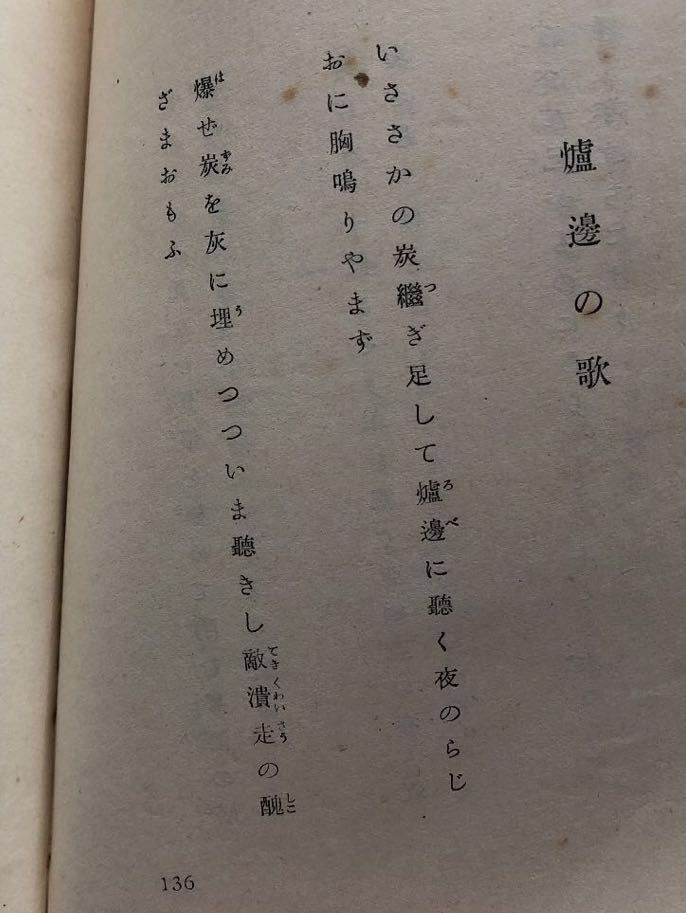 爐邊の歌
いささかの炭繼ぎ足して爐邊に聽く夜のらじ
おに胸鳴りやまず
爆ぜ炭を灰に埋めつついま聽きし敵潰走の醜
ざまおもふ
136